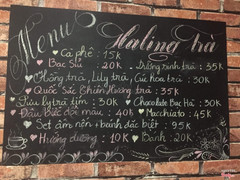 Menu Haling trà
Cà phê : 15K
Bạc Sỉu : 20K Trường sinh trà : 35K
Hồng trà, Lily trà, Cúc hoa trà : 30K
Quốc Sắc Thiên Hương trà : 35K
Lily trà tím : 30K Chocolate Bạc Hà : 30K
Đậu Biếc đổi màu : 40K Macchiato : 45K
Set ấm nến + bánh đặc biệt : 95K
Hướng dương : 10K Bánh : 20K